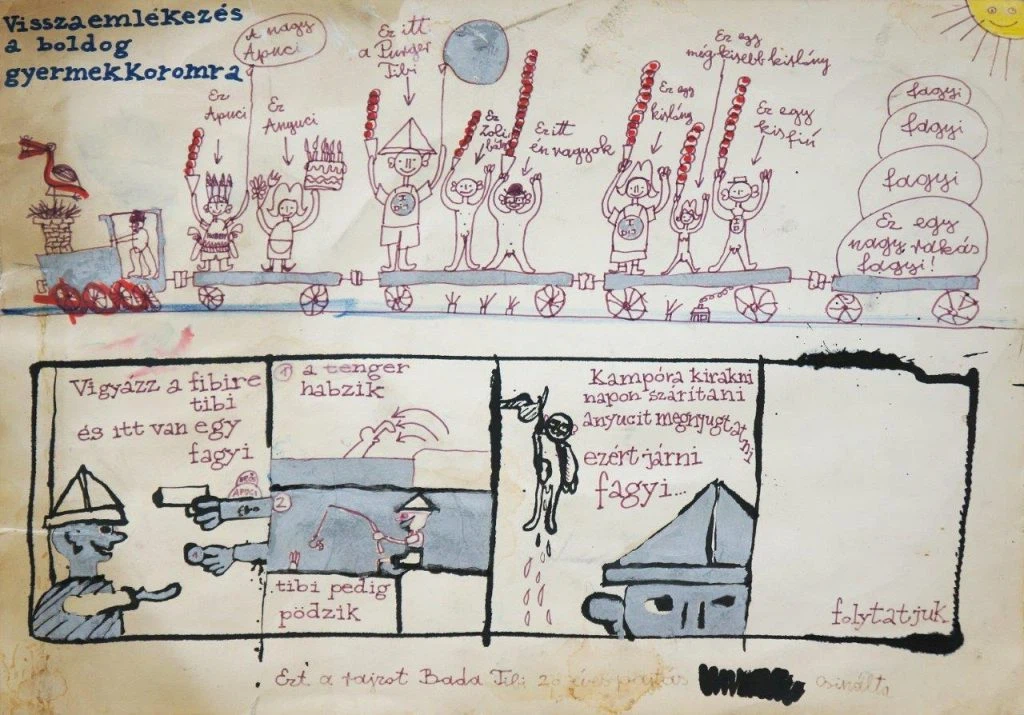 Visszaemlékezés
a boldog
gyermekkoromra
A nagy
Apuci
Ez itt
a Purger
Tibi
Ez egy
még kisebb kislány
Ez
Apuci
Ez
Anyuci
Ez
Zoli
Ez itt
én vagyok
Ez egy
kislány
Ez egy
kisfiú
fagyi
fagyi
fagyi
Ez egy
nagy rakás
fagyi!
Vigyázz a fibire
tibi
és itt van egy
fagyi
APUCI
1 a tenger
habzik
2
tibi pedig
pödzik
Kampóra kirakni
napon szárítani
anyucit megnyugtatni
ezért járni
fagyi...
folytatjuk
Ezt a rajzot Bada Tibi
csinálta